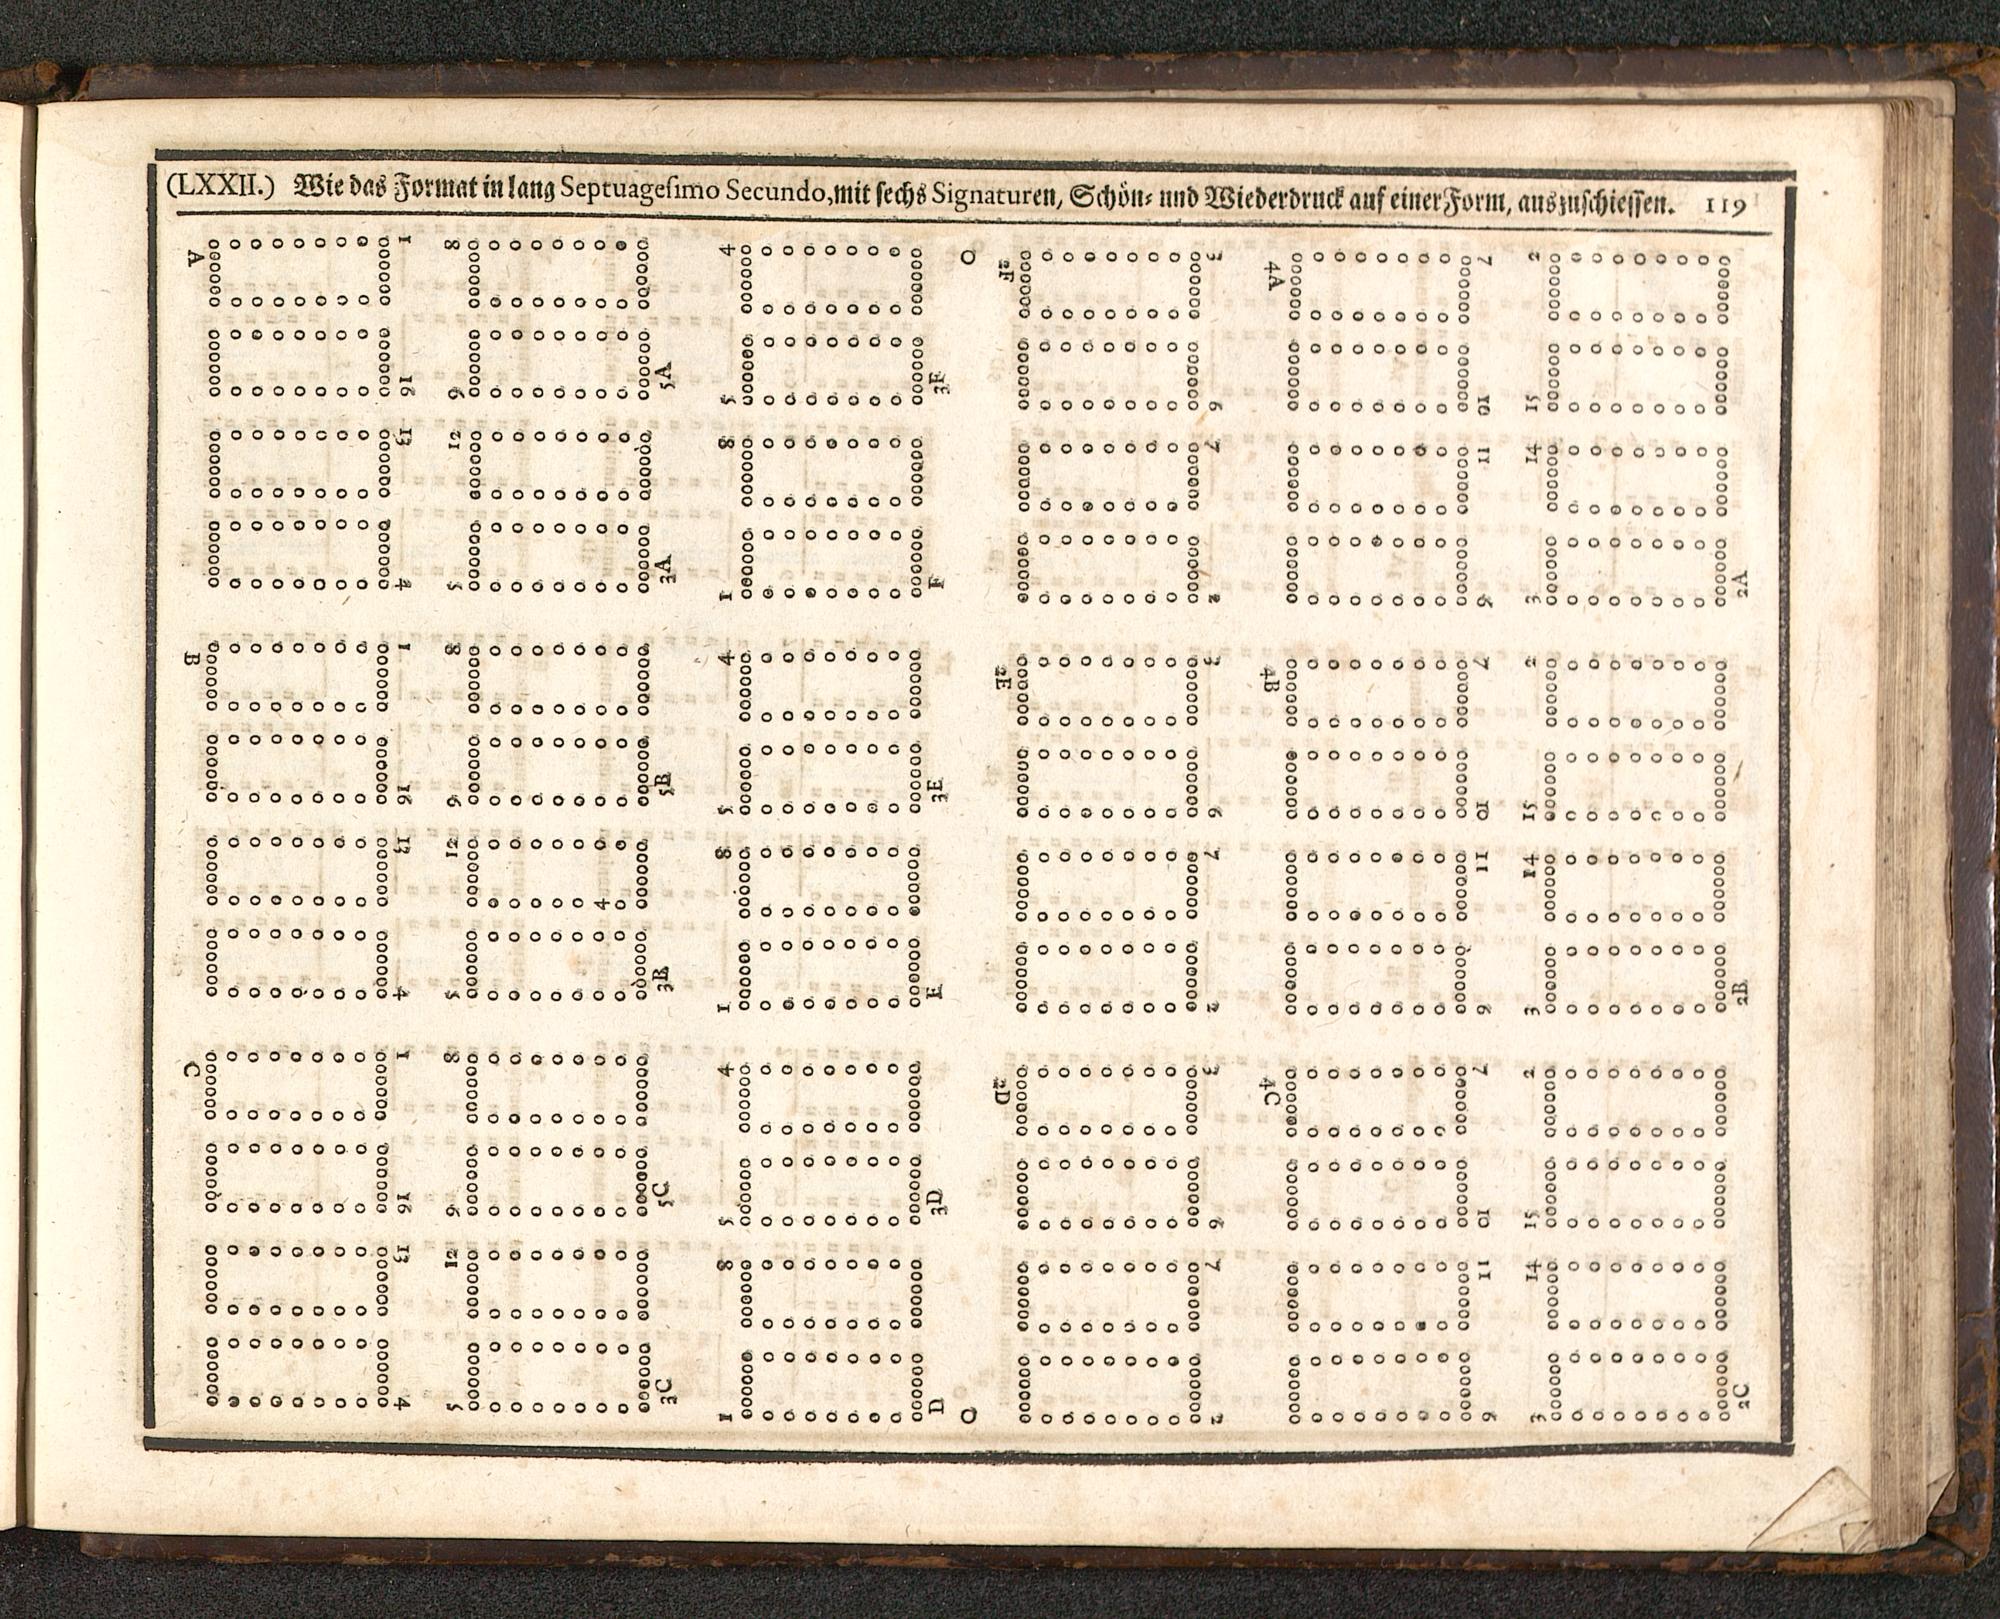 (LXXII.) Wie das Format in lang Septuagesimo Secundo, mit sechs Signaturen, Schön- und Wiederdruck auf einer Form, auszuschiessen. 119
A 1 8 4 O 2F 3 4A 7 2
16 9 5A 5 3F 6 10 15
13 12 8 7 11 14
4 5 3A 1 F 2 6 3 2A
B 1 8 4 2E 3 4B 7 2
16 9 5B 5 3E 6 10 15
13 12 4 8 7 11 14
4 5 3B 1 E 2 6 3 2B
C 1 8 4 2D 3 4C 7 2
16 9 5C 5 3D 6 10 15
13 12 8 7 11 14
4 5 3C 1 D O 2 6 3 2C